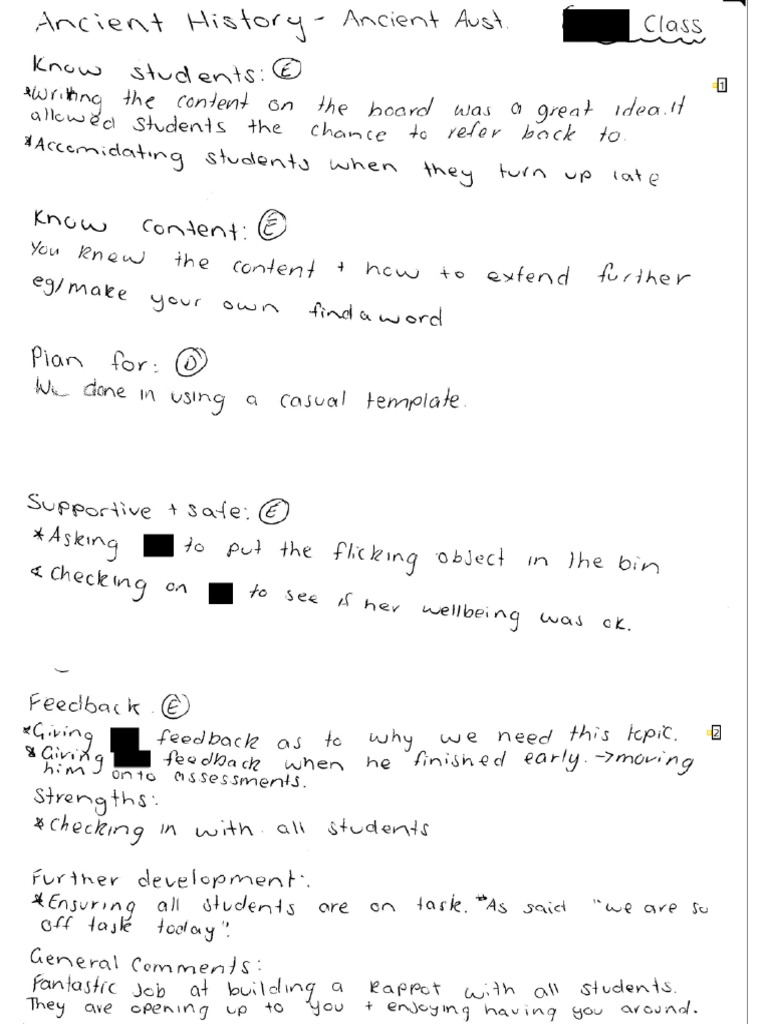 Ancient History - Ancient Aust. Class
Know students: E
1
*Writing the content on the board was a great idea. It
allowed students the chance to refer back to.
*Accomidating students when they turn up late
Know content: E
You knew the content + how to extend further
eg/make your own findaword
Plan for: D
done in using a casual template.
Supportive + safe: E
*Asking to put the flicking object in the bin
*Checking on to see if her wellbeing was ok.
Feedback. E
*Giving feedback as to why we need this topic.
2
*Giving feedback when he finished early. →moving
him onto assessments.
Strengths:
*Checking in with all students
Further development:
*Ensuring all students are on task. *As said "we are so
off task today".
General Comments:
Fantastic job at building a rappot with all students.
They are opening up to you + enjoying having you around.